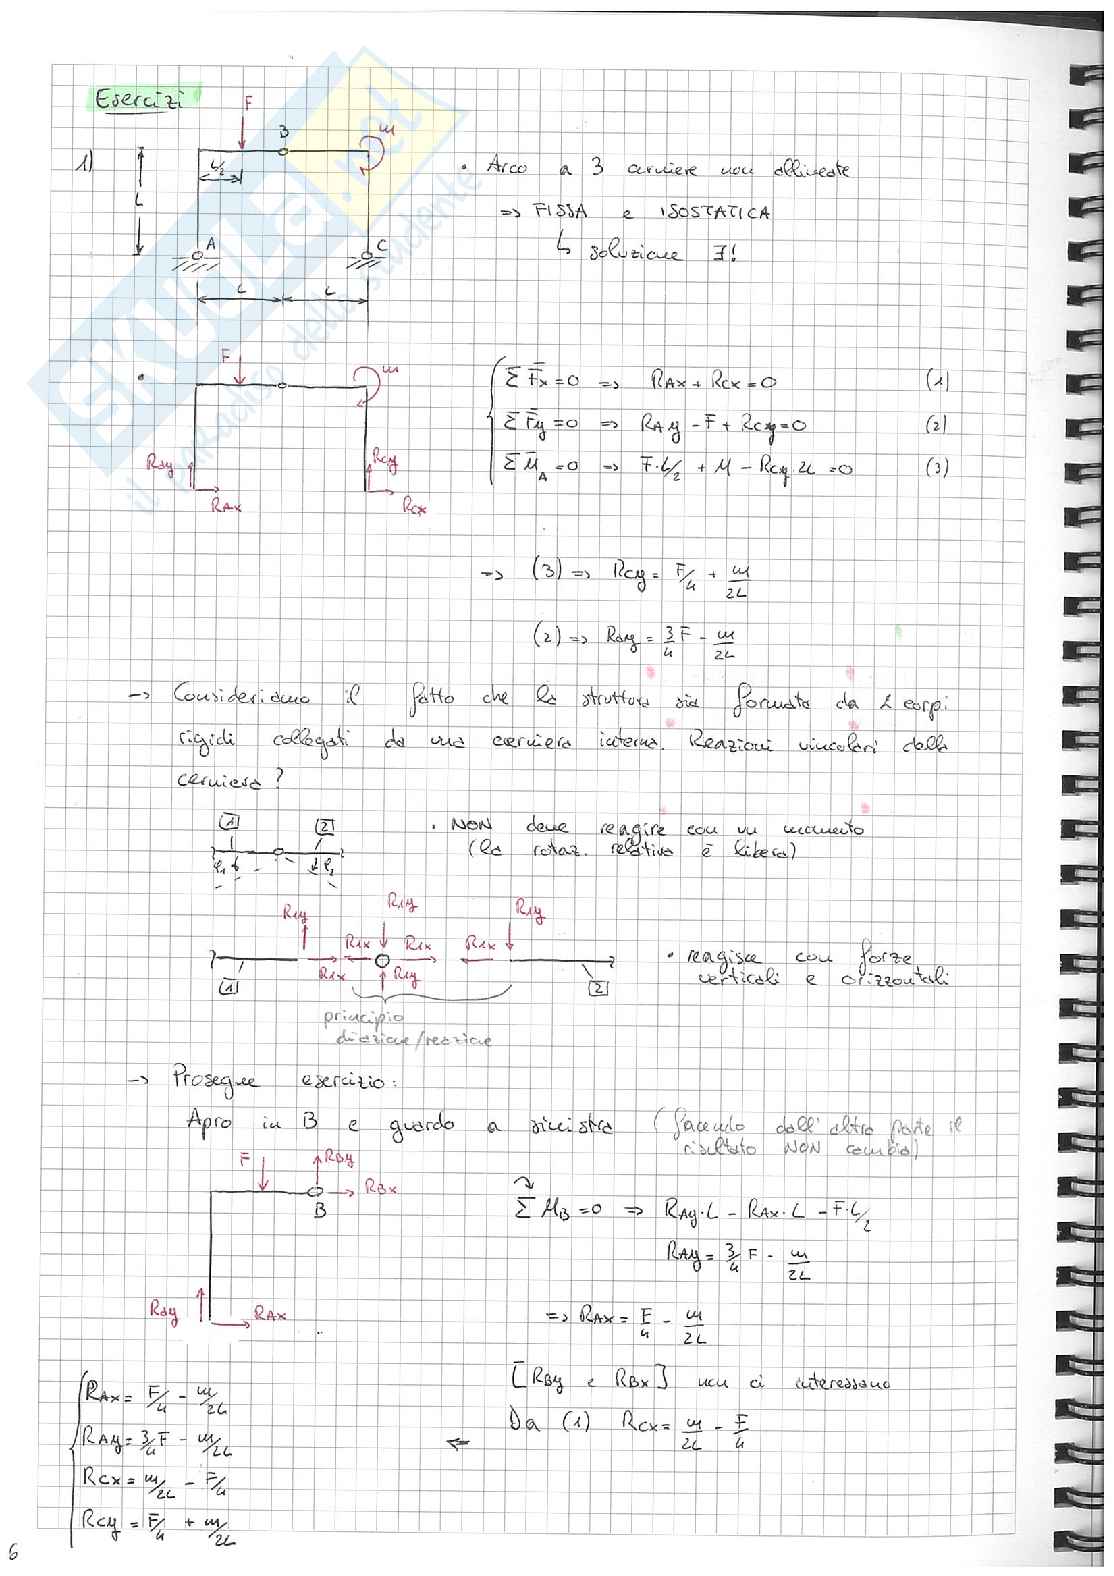 Esercizi
1)
F
B
m
L/2
L
A
C
L
L
• Arco a 3 cerniere non allineate
=> FISSA e ISOSTATICA
↳ soluzione ∃!
F
m
RAy
RAx
RCy
RCx
ΣFx=0 => RAx + RCx = 0 (1)
ΣFy=0 => RAy - F + RCy = 0 (2)
ΣMA=0 => F·L/2 + M - RCy·2L = 0 (3)
=> (3) => RCy = F/4 + m/2L
(2) => RAy = 3/4 F - m/2L
-> Consideriamo il fatto che la struttura sia formata da 2 corpi
rigidi collegati da una cerniera interna. Reazioni vincolari della
cerniera?
1
2
φ1
φ2
• NON deve reagire con un momento
(la rotaz. relativa è libera)
R1y
R1y
R1y
R1x
R1x
R1x
R1x
R1y
1
2
• reagisce con forze
verticali e orizzontali
principio
di azione/reazione
-> Prosegue esercizio:
Apro in B e guardo a sinistra (facendo dall'altra parte il
risultato NON cambia)
F
RBy
RBx
B
RAy
RAx
ΣMB=0 => RAy·L - RAx·L - F·L/2
RAy = 3/4 F - m/2L
=> RAx = F/4 - m/2L
[RBy e RBx] non ci interessano
Da (1) RCx = m/2L - F/4
<=
RAx = F/4 - m/2L
RAy = 3/4 F - m/2L
RCx = m/2L - F/4
RCy = F/4 + m/2L
6
SKUOLA.net
il paradiso dello studente